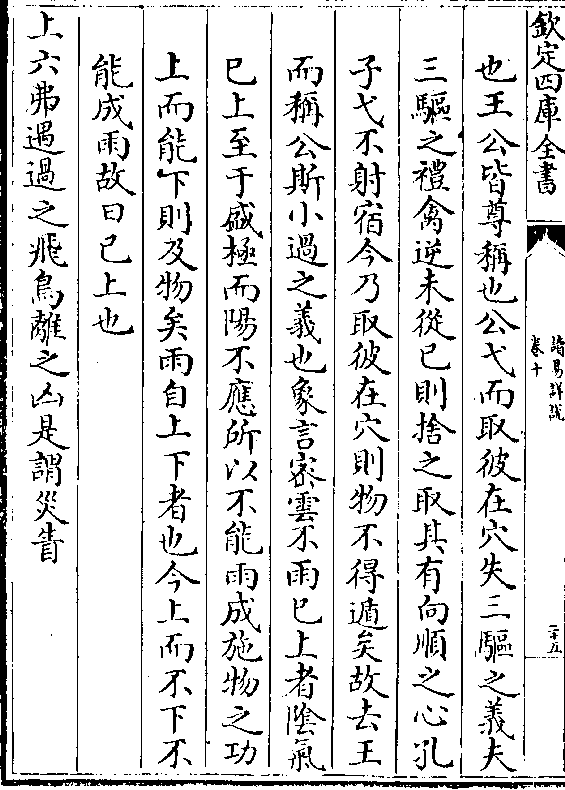 欽定四庫全書
讀易詳說
卷十
二十五
也王公皆尊稱也公弋而取彼在穴失三驅之義夫
三驅之禮禽逆未從已則捨之取其有向順之心孔
子弋不射宿今乃取彼在穴則物不得遁矣故去王
而稱公斯小過之義也象言密雲不雨已上者陰氣
已上至于盛極而陽不應所以不能雨成施物之功
上而能下則及物矣雨自上下者也今上而不下不
能成雨故曰已上也
上六弗遇過之飛鳥離之凶是謂災眚